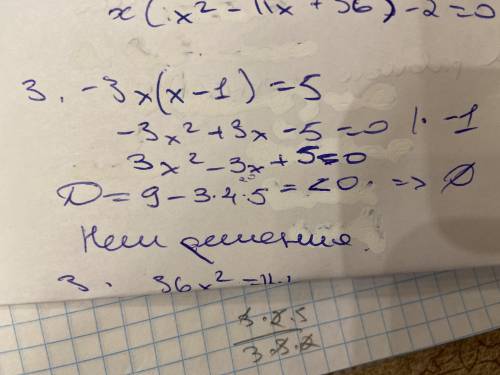 x(x² - 11x + 36) - 2 = 0
3. -3x(x - 1) = 5
-3x² + 3x - 5 = 0 | · -1
3x² - 3x + 5 = 0
D = 9 - 3·4·5 = <0 => Ø
Нет решения
3. 36x² =
3·2·5
3·3·2